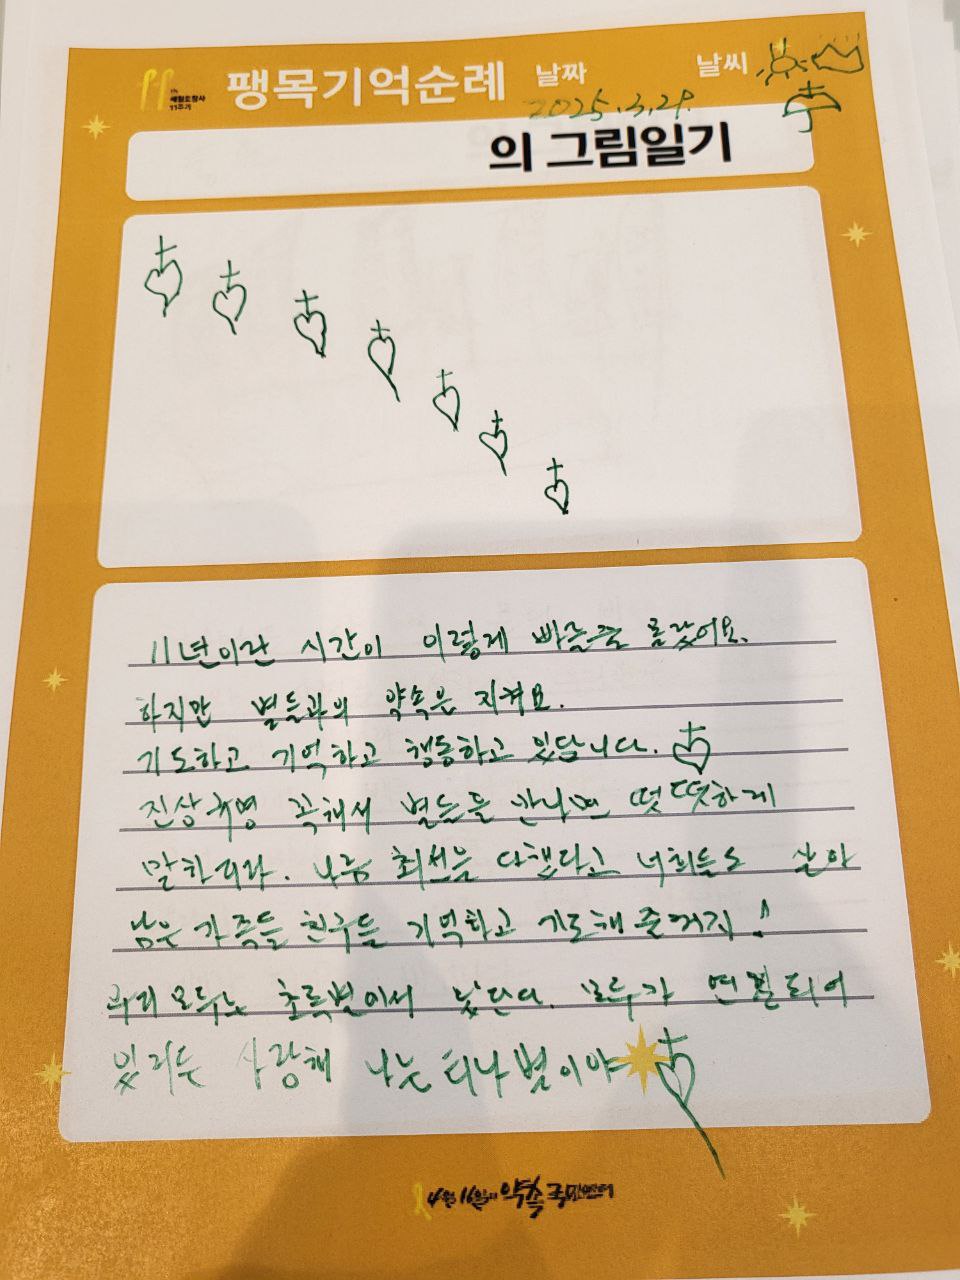 세월호참사
11주기
팽목기억순례 날짜 날씨
2025.3.29.
의 그림일기
11년이란 시간이 이렇게 빠른줄 몰랐어요.
하지만 별들과의 약속은 지켜요.
기도하고 기억하고 행동하고 있답니다.
진상규명 꼭해서 별들을 만나면 떳떳하게
말하리라. 나름 최선을 다했다고 너희들도 살아
남은 가족들 친구들 기억하고 기도해 준거지!
우리 모두는 초록별에서 왔단다. 모두가 연결되어
있거든 사랑해 나는 티나별이야
4월16일의 약속 국민연대